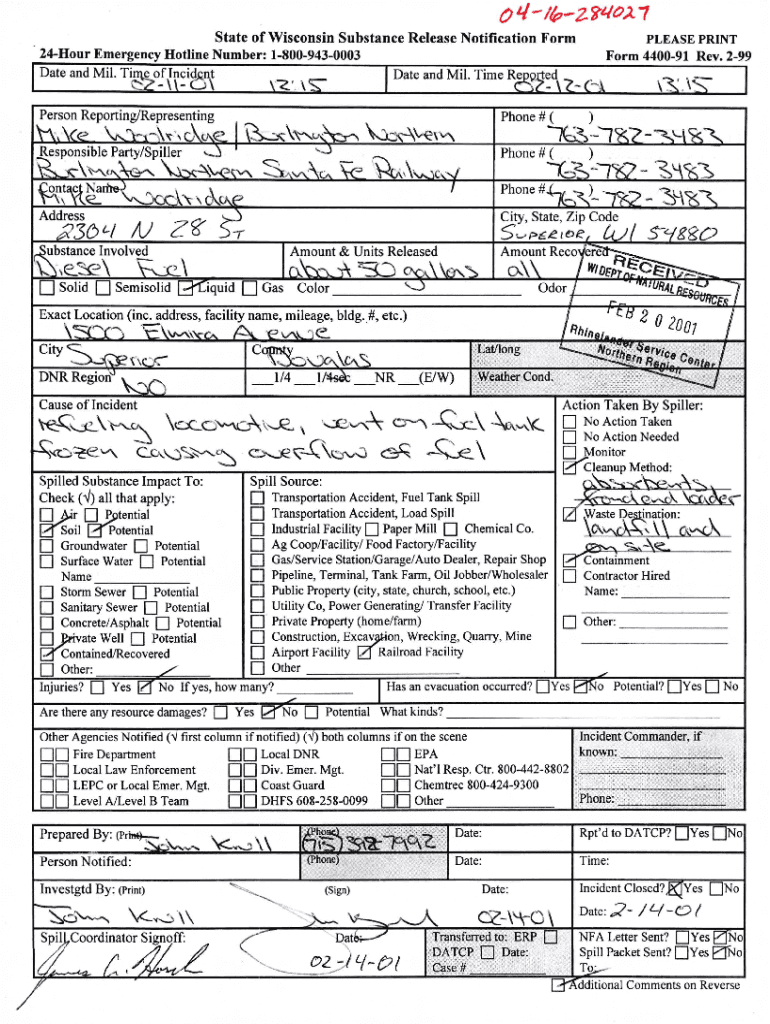 04-16-284027
State of Wisconsin Substance Release Notification Form PLEASE PRINT
24-Hour Emergency Hotline Number: 1-800-943-0003 Form 4400-91 Rev. 2-99
Date and Mil. Time of Incident 02-11-01 12:15 Date and Mil. Time Reported 02-12-01 13:15
Person Reporting/Representing Phone # ( )
Mike Woolridge/Burlington Northern 763-782-3483
Responsible Party/Spiller Phone # ( )
Burlington Northern Santa Fe Railway 763-782-3483
Contact Name Phone # ( )
Mike Woolridge 763-782-3483
Address City, State, Zip Code
2304 N 28 St Superior, WI 54880
Substance Involved Amount & Units Released Amount Recovered
Diesel Fuel about 50 gallons all
Solid Semisolid Liquid Gas Color Odor
RECEIVED
WI DEPT OF NATURAL RESOURCES
FEB 20 2001
Rhinelander Service Center
Northern Region
Exact Location (inc. address, facility name, mileage, bldg. #, etc.)
1500 Elmira Avenue
City Superior County Douglas Lat/long
DNR Region NO 1/4 1/4sec NR (E/W) Weather Cond.
Cause of Incident
refueling locomotive, vent on fuel tank
frozen causing overflow of fuel
Action Taken By Spiller:
No Action Taken
No Action Needed
Monitor
Cleanup Method:
absorbents
frontend loader
Waste Destination:
landfill and
on site
Containment
Contractor Hired
Name:
Other:
Spilled Substance Impact To:
Check (√) all that apply:
Air Potential
Soil Potential
Groundwater Potential
Surface Water Potential
Name
Storm Sewer Potential
Sanitary Sewer Potential
Concrete/Asphalt Potential
Private Well Potential
Contained/Recovered
Other:
Spill Source:
Transportation Accident, Fuel Tank Spill
Transportation Accident, Load Spill
Industrial Facility Paper Mill Chemical Co.
Ag Coop/Facility/ Food Factory/Facility
Gas/Service Station/Garage/Auto Dealer, Repair Shop
Pipeline, Terminal, Tank Farm, Oil Jobber/Wholesaler
Public Property (city, state, church, school, etc.)
Utility Co, Power Generating/ Transfer Facility
Private Property (home/farm)
Construction, Excavation, Wrecking, Quarry, Mine
Airport Facility Railroad Facility
Other
Injuries? Yes No If yes, how many? Has an evacuation occurred? Yes No Potential? Yes No
Are there any resource damages? Yes No Potential What kinds?
Other Agencies Notified (√ first column if notified) (√) both columns if on the scene
Fire Department Local DNR EPA
Local Law Enforcement Div. Emer. Mgt. Nat'l Resp. Ctr. 800-442-8802
LEPC or Local Emer. Mgt. Coast Guard Chemtrec 800-424-9300
Level A/Level B Team DHFS 608-258-0099 Other
Incident Commander, if
known:
Phone:
Prepared By: (Print) John Krull (Phone) (715)392-7992 Date: Rpt'd to DATCP? Yes No
Person Notified: (Phone) Date: Time:
Investgtd By: (Print) (Sign) Date: Incident Closed? X Yes No
John Krull 02-14-01 Date: 2-14-01
Spill Coordinator Signoff: Date: Transferred to: ERP NFA Letter Sent? Yes No
02-14-01 DATCP Date: Spill Packet Sent? Yes No
Case # To:
Additional Comments on Reverse